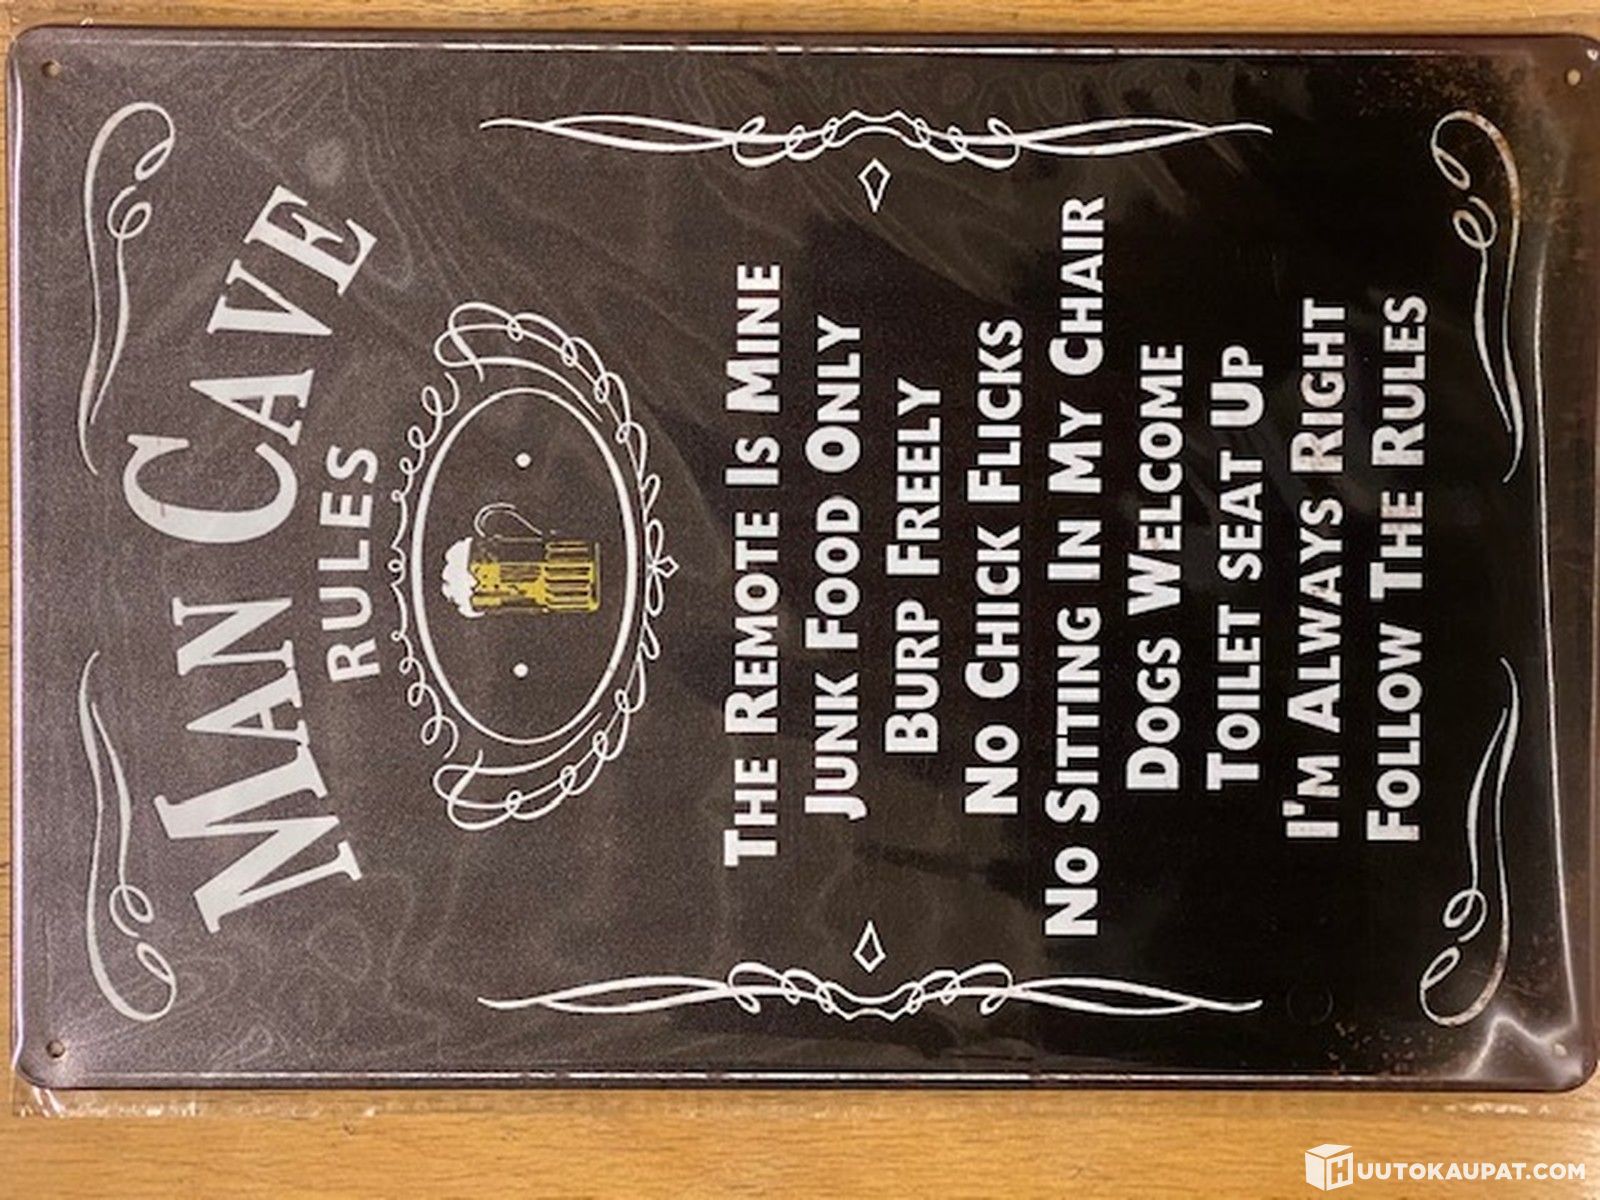 Man Cave
RULES
The Remote Is Mine
Junk Food Only
Burp Freely
No Chick Flicks
No Sitting In My Chair
Dogs Welcome
Toilet seat Up
I'm Always Right
Follow The Rules
HUUTOKAUPAT.COM